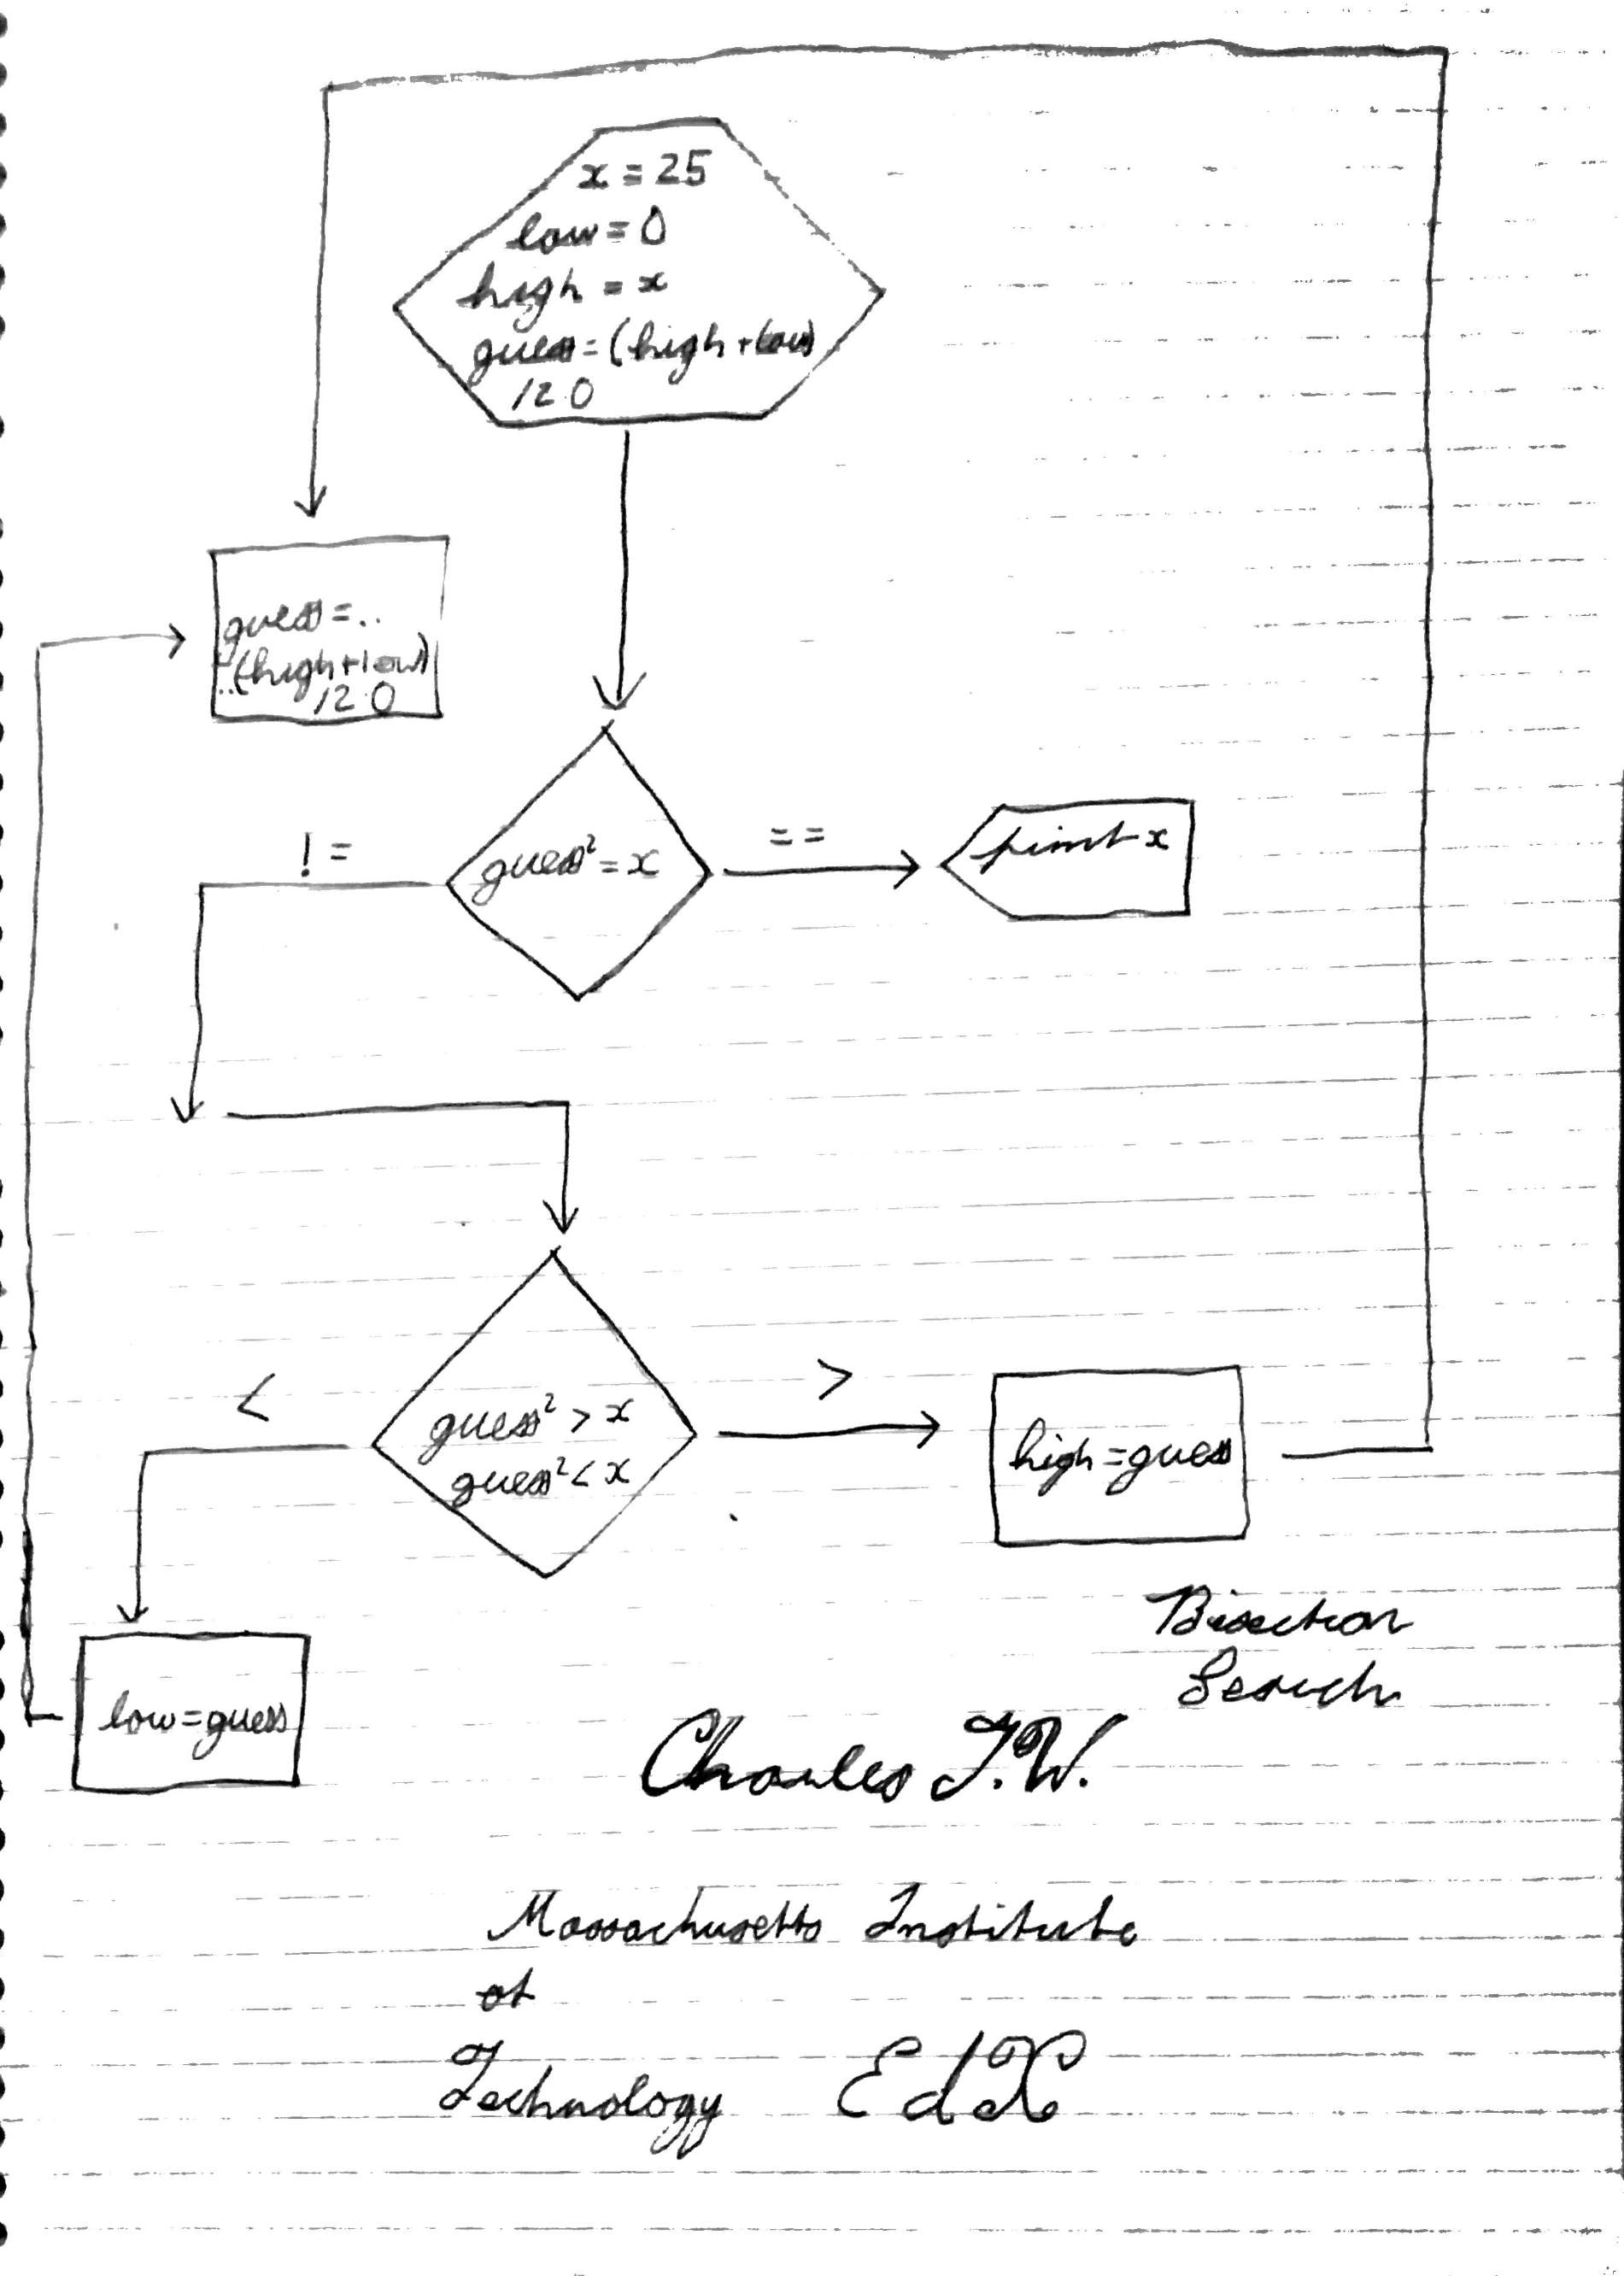 x = 25
low = 0
high = x
guess = (high + low)
/2.0
guess = ..
..(high + low)
/2.0
guess² = x
! =
= =
print x
<
>
guess² > x
guess² < x
high = guess
low = guess
Bisection
Search
Charles T.W.
Massachusetts Institute
of
Technology EdX